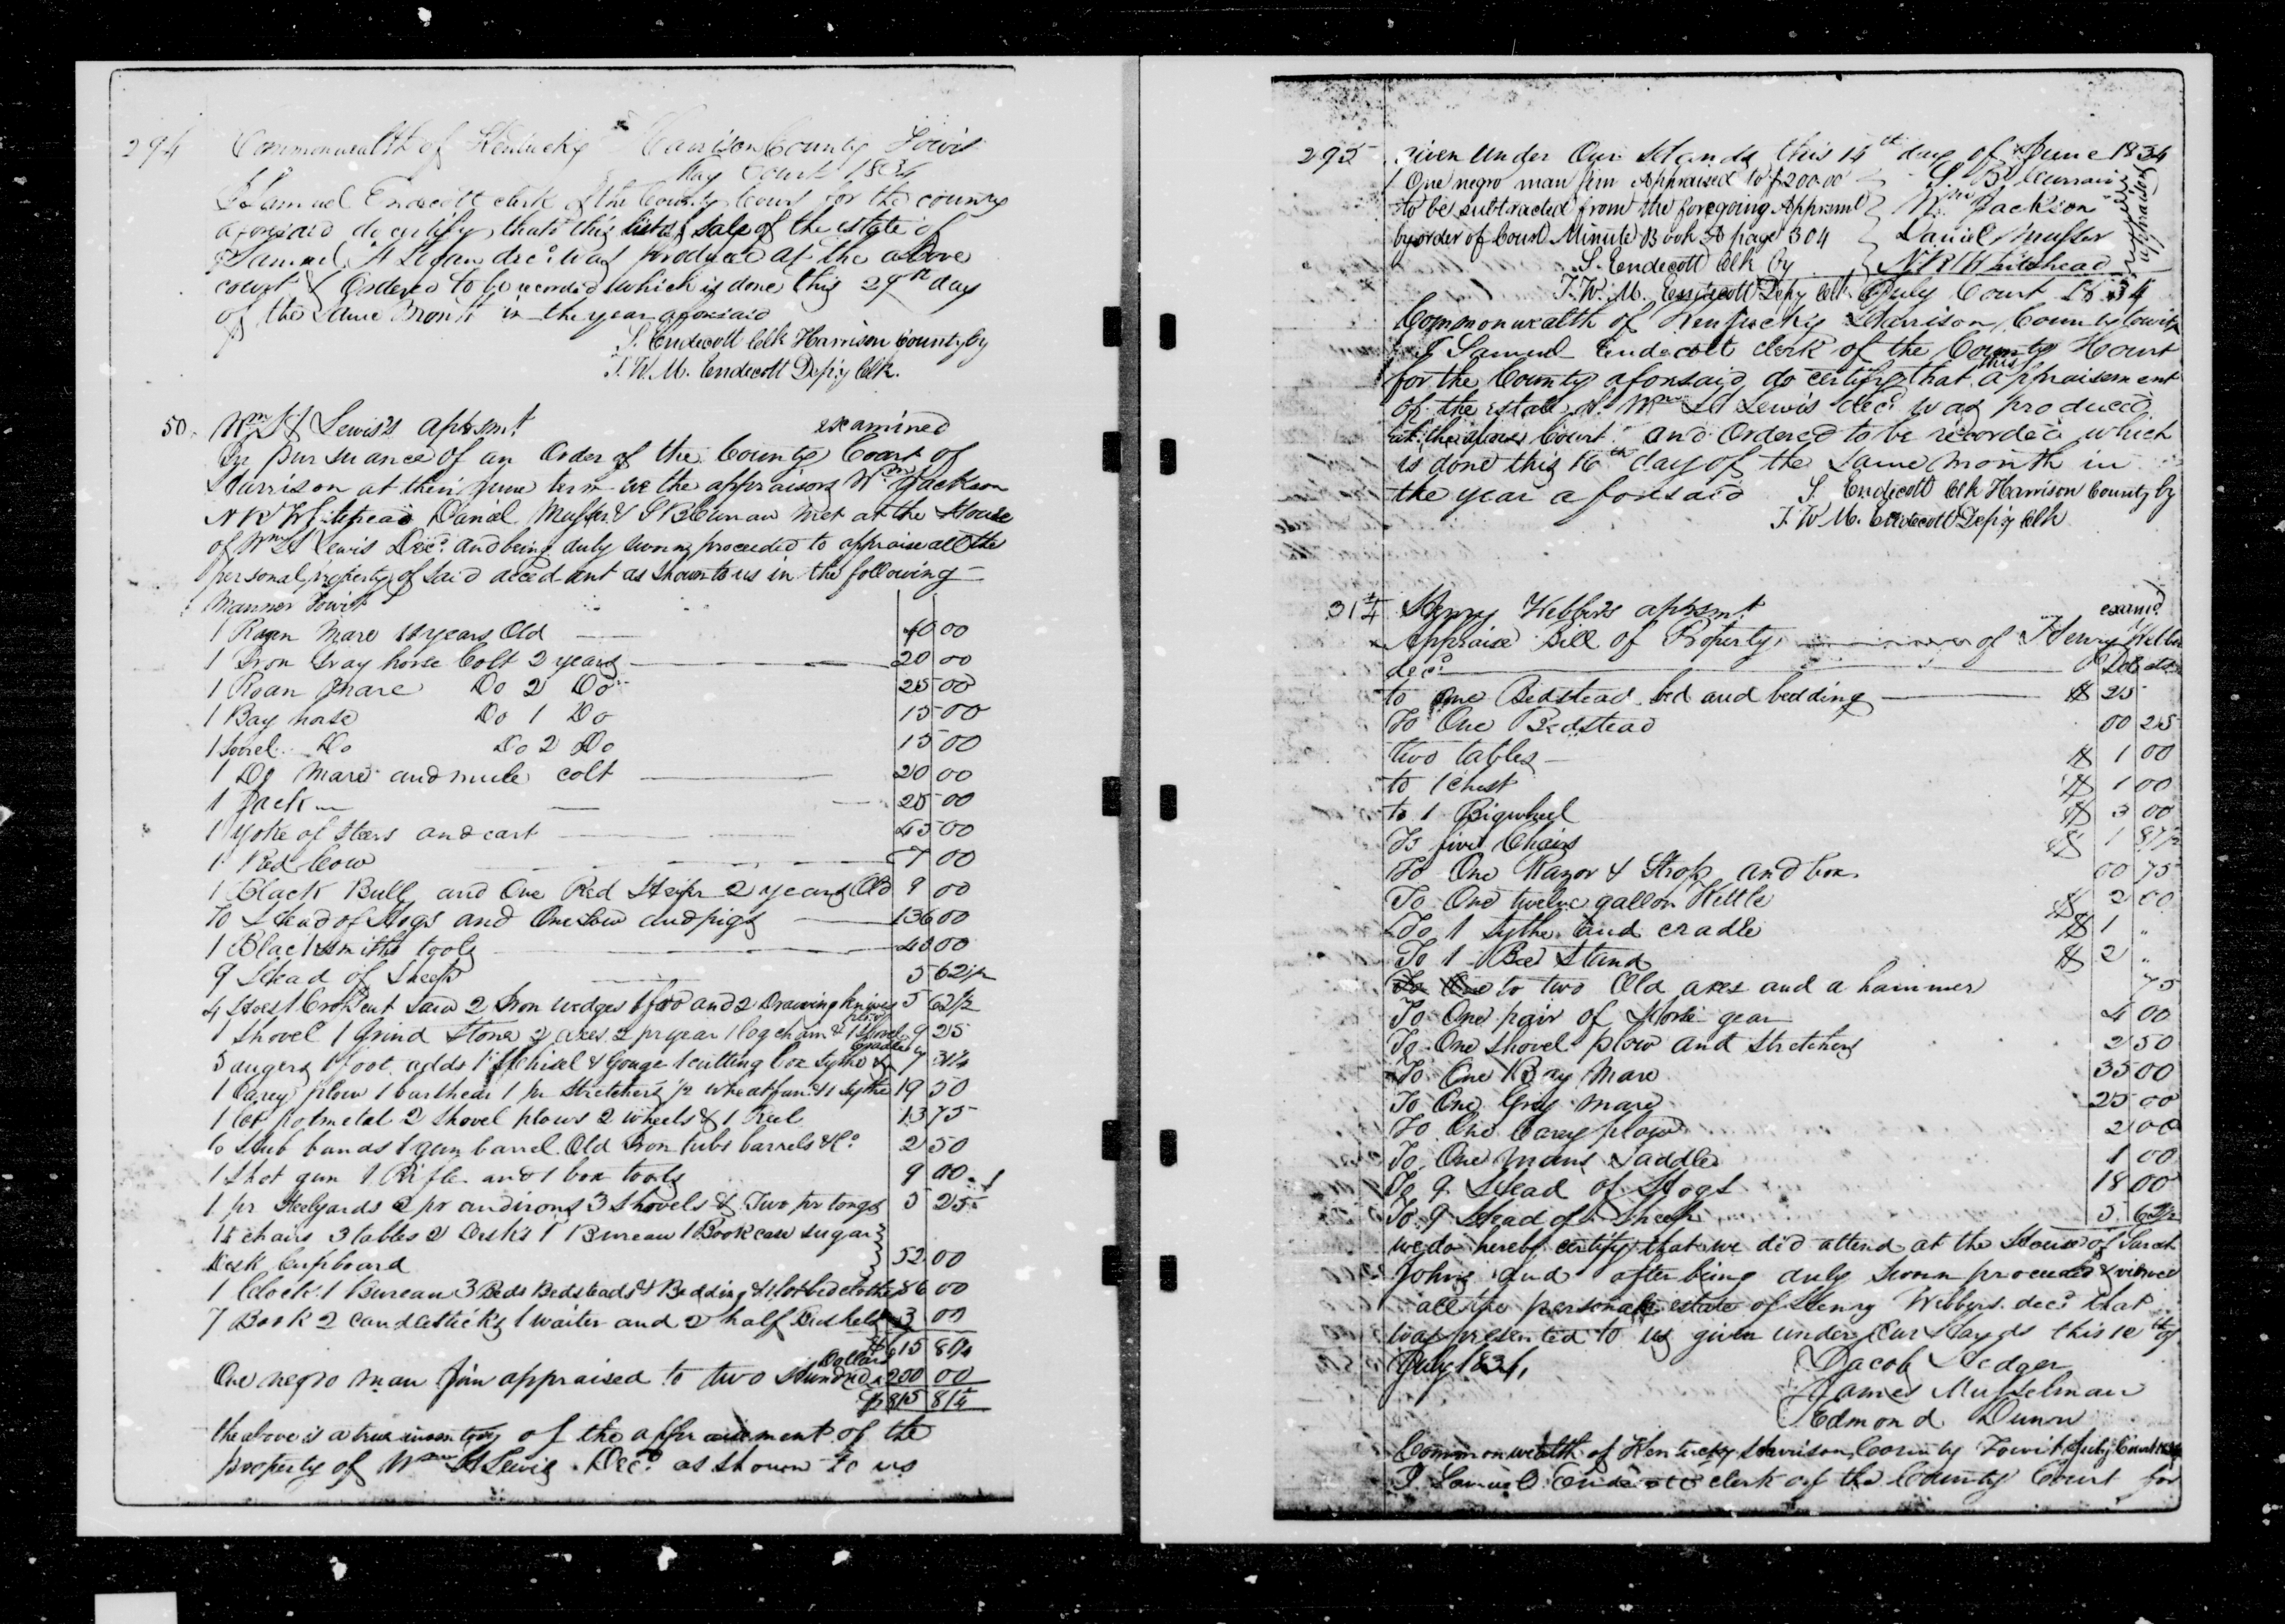 294 Commonwealth of Kentucky Harrison County Towit
May Court 1834
I Samuel Endecott clerk of the County Court for the county
aforesaid do certify that this list of sale of the estate of
Samuel dec.d was produced at the above
court & Ordered to be recorded which is done this 29th day
of the same Month in the year aforesaid
S. Endecott Clk Harrison County by
T. W. M. Endecott Dep'y Clk.
50. Wm H Lewis's aprsmt examined
In pursuance of an Order of the County Court of
Harrison at their June term we the appraisors Wm Jackson
N R Whitehead Danel Musser & S B Curran met at the House
of Wm H Lewis Dec.d and being duly sworn proceeded to appraise all the
personal property of said deced ant as shown to us in the following
Manner Towit
1 Roan Mare years Old 40 00
1 Iron Gray horse Colt 2 years 20 00
1 Roan Mare Do 2 Do 25 00
1 Bay horse Do 1 Do 15 00
1 Sorel Do Do 2 Do 15 00
1 Do Mare and mule colt 20 00
1 Jack 25 00
1 Yoke of Steers and cart 45 00
1 Red Cow 7 00
1 Black Bull and One Red Heifer 2 years Old 9 00
70 Head of Hogs and One Sow and pigs 136 00
1 Blacksmiths tools 40 00
9 Head of Sheep 5 62 1/2
4 Hoes 1 Crosscut Saw 2 Iron wedges 1 froo and 2 Drawing knives 5 62 1/2
1 Shovel 1 Grind Stone 2 axes 2 pr gear 1 log chain & 1 Shovel plow 9 25
5 augers 1 foot adds 1 Chisel & Gouge 1 cutting box Sythe & Cradle 7 31 1/4
1 Carey plow 1 barshear 1 pr Stretchers 1/2 wheat fan & 1 Sythe 19 50
1 lot potmetal 2 Shovel plows 2 wheels & 1 Reel 13 75
6 Hub bands 1 gun barrel Old Iron tubs barrels &c 2 50
1 Shot gun 1 Rifle and 1 box tools 9 00
1 pr Steelyards 2 pr andirons 3 Shovels & Two pr tongs 5 25
15 chairs 3 tables 2 Desks 1 Bureau 1 Bookcase sugar
Desk Cupboard 52 00
1 Clock 1 Bureau 3 Beds Bedsteads & Bedding & 1 lot bed clothes 86 00
7 Book 2 candlesticks 1 waiter and 2 half Bushels 3 00
$615 81 1/4
One negro man Jim appraised to two Hundred Dollars 200 00
$815 81 1/4
the above is a true inventory of the appraisement of the
property of Wm H Lewis Dec.d as shown to us
295 Given Under Our Hands this 14th day of June 1834
1 One negro man Jim Appraised to $200.00 S. B. Curran
to be subtracted from the foregoing Apprsmt Wm Jackson
by order of Court Minute Book A page 304 Daniel Musser
S. Endecott Clk by N R Whitehead
T. W. M. Endecott Dep'y Clk July Court 1834
Commonwealth of Kentucky Harrison County towit
I Samuel Endecott clerk of the County Court
for the County aforesaid do certify that this appraisement
of the estate of Wm H Lewis dec.d was produced
at the above Court and Ordered to be recorded which
is done this 16th day of the same month in
the year aforesaid S. Endecott Clk Harrison County by
T. W. M. Endecott Dep'y Clk
31 1/4 Henry Webber's aprsmt examd
Appraise Bill of Property of Henry Webber
dec.d
to One Bedstead bed and bedding $ 25
To One Bedstead 00 25
two tables $ 1 00
to 1 chest $ 1 00
to 1 Bigwheel $ 3 00
To five Chairs $ 1 87 1/2
To One Razor & Strop and box 00 75
To One twelve gallon Kettle $ 2 00
To 1 Sythe and cradle $ 1 "
To 1 Bee Stand $ 2 "
to two Old axes and a hammer 75
To One pair of Horse gear 4 00
To One shovel plow and stretchers 2 50
To One Bay Mare 35 00
To One Gray mare 25 00
To One Carey plow 2 00
To One Mans Saddle 1 00
To 9 Head of Hogs 18 00
To 9 Head of Sheep 5 62 1/2
we do hereby certify that we did attend at the House of Sarah
Johns and after being duly sworn proceeded & viewed
all the personal estate of Henry Webbers dec.d that
was presented to us given under Our Hands this 10th of
July 1834
Jacob Hedger
James Musselman
Edmond Dunn
Commonwealth of Kentucky Harrison County Towit July Court 1834
I Samuel Endecott clerk of the County Court for